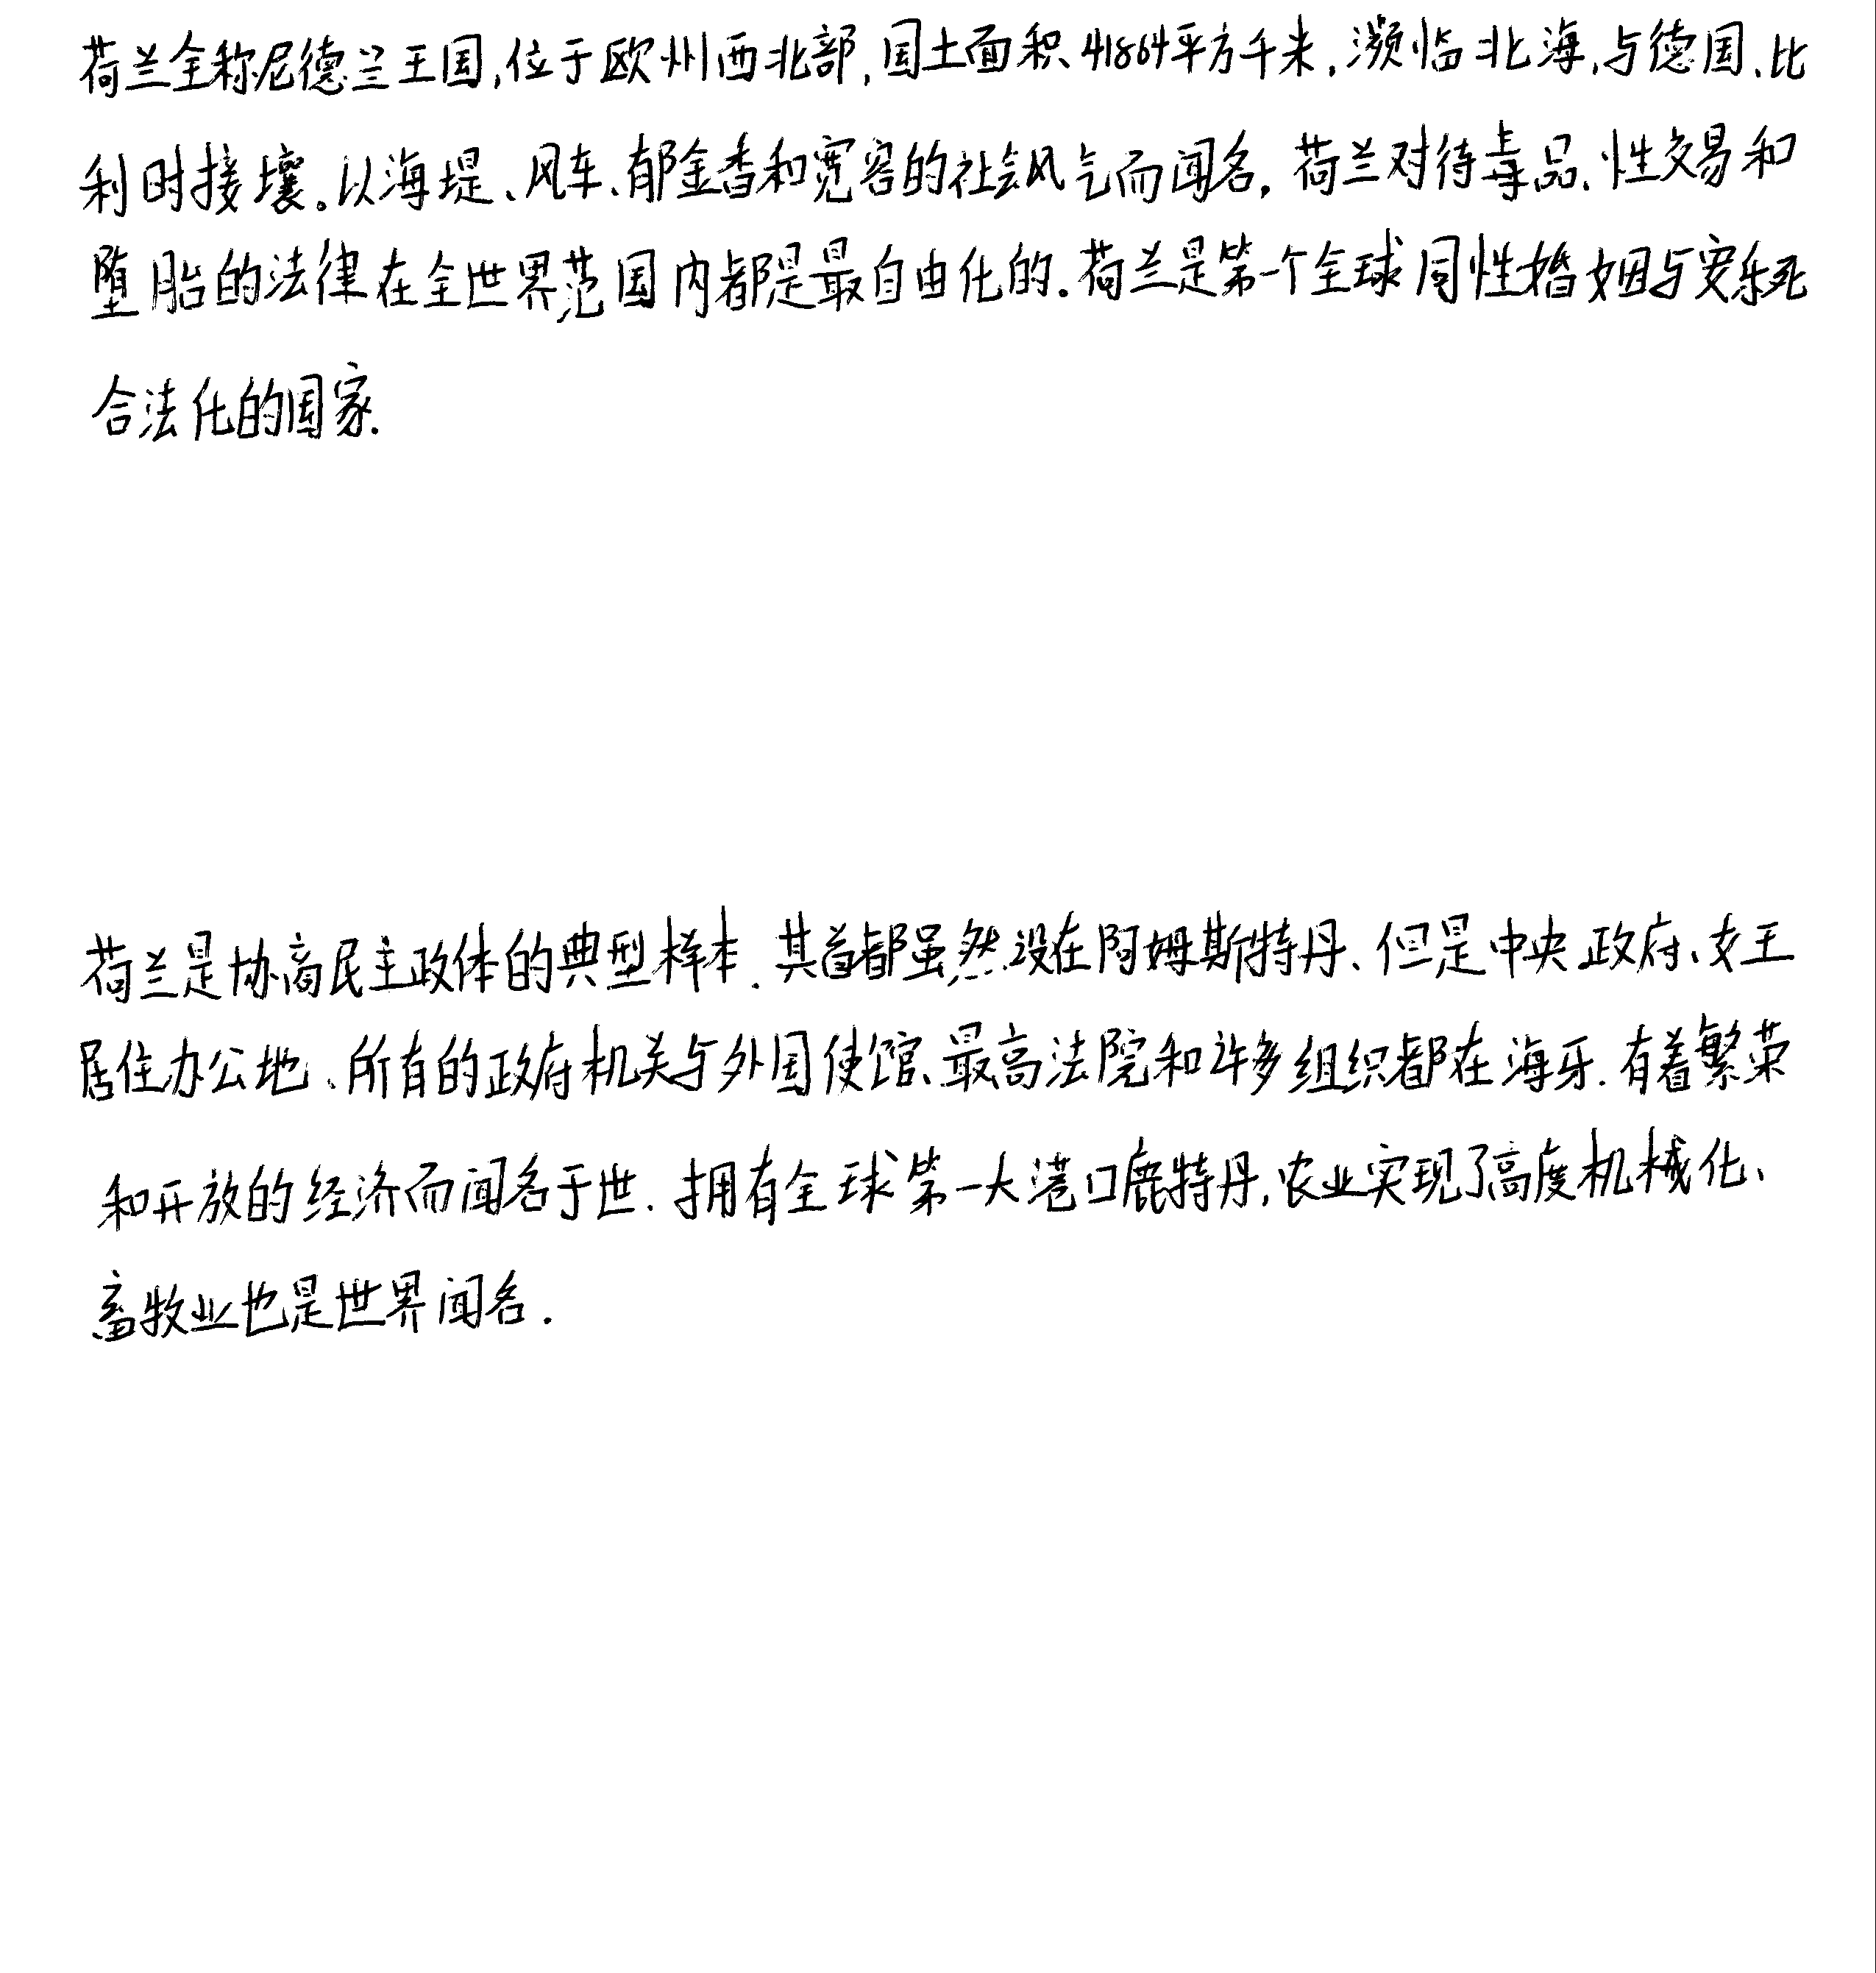 荷兰全称尼德兰王国,位于欧州西北部,国土面积41864平方千米.濒临北海,与德国、比
利时接壤。以海堤、风车、郁金香和宽容的社会风气而闻名,荷兰对待毒品、性交易和
堕胎的法律在全世界范国内都是最自由化的.荷兰是第一个全球同性婚姻与安乐死
合法化的国家.
荷兰是协商民主政体的典型样本.其首都虽然设在阿姆斯特丹、但是中央政府、女王
居住办公地、所有的政府机关与外国使馆、最高法院和许多组织都在海牙.有着繁荣
和开放的经济而闻名于世.拥有全球第一大港口鹿特丹,农业实现了高度机械化、
畜牧业也是世界闻名.